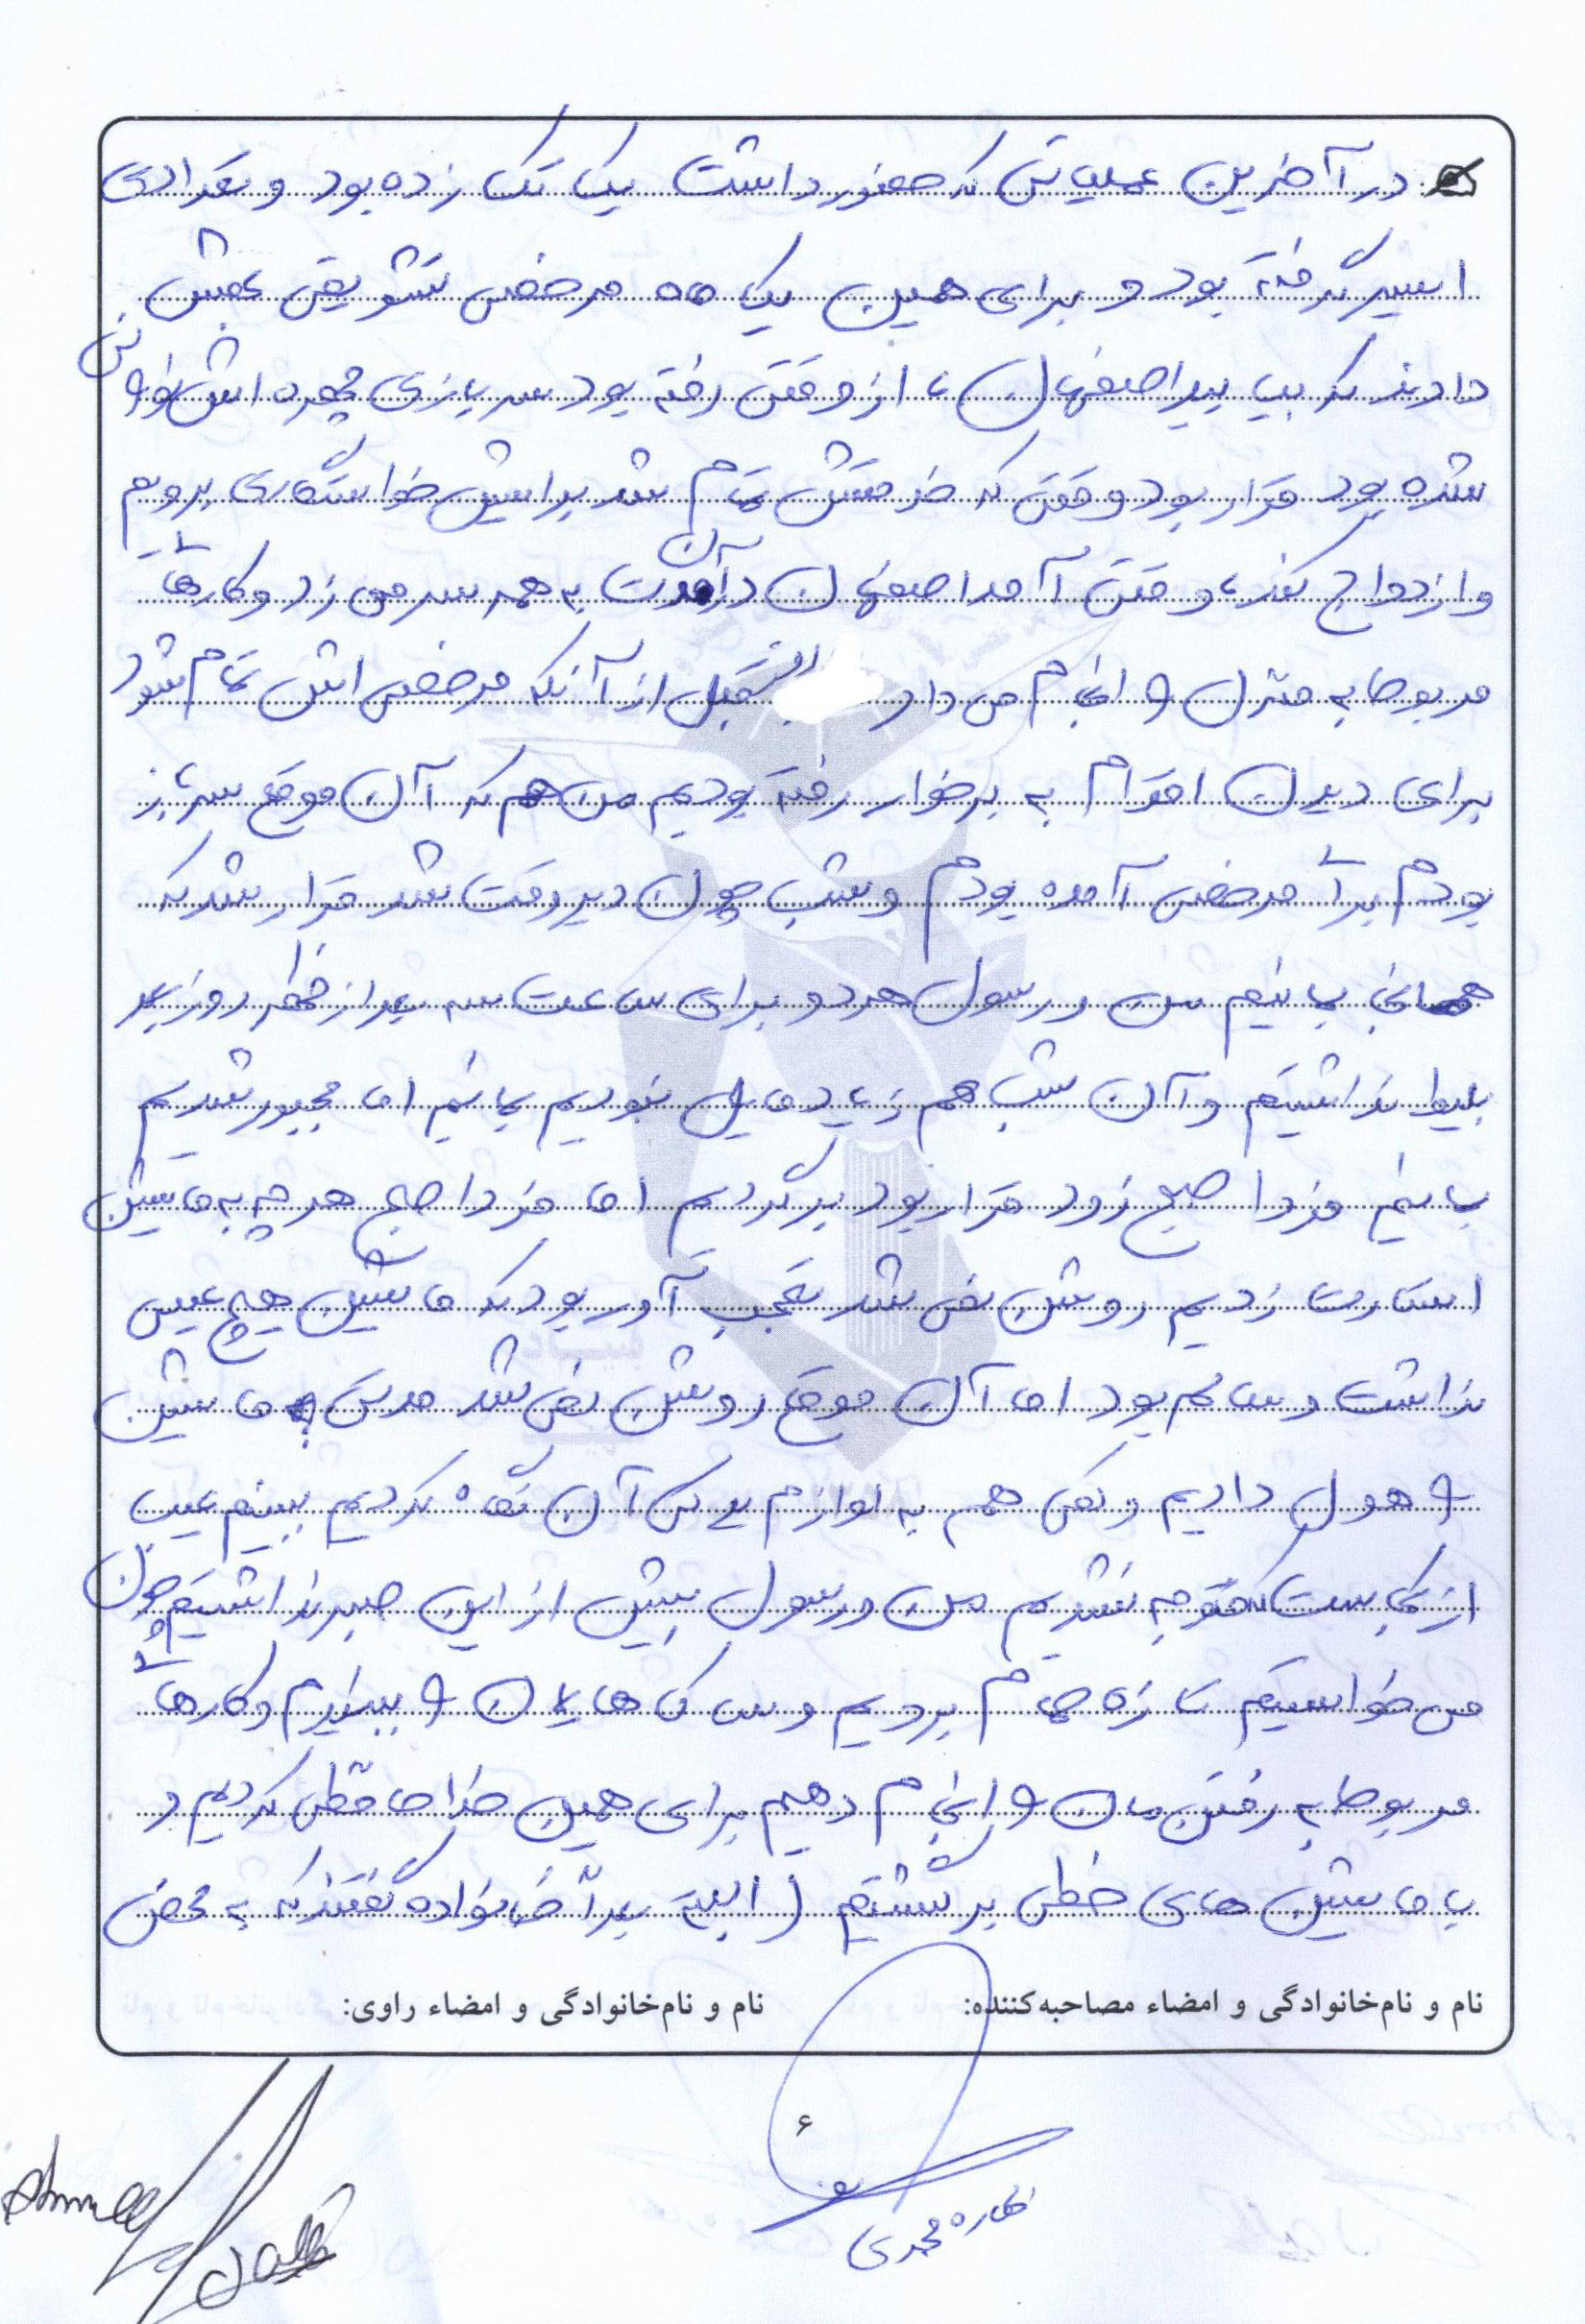 در آخرین عملیاتی که حضور داشت یک تک زده بود و تعدادی
اسیر گرفته بود و برای همین یک ماه مرخصی تشویقی بهش
دادند که بیاید اصفهان، از وقتی رفته بود سربازی چهره اش نورانی
شده بود قرار بود وقتی که خدمتش تمام شد برایش خواستگاری برویم
و ازدواج کند، وقتی آمد اصفهان در آن مدت به همه سر می زد و کارهای
مربوط به منزل و انجام می داد روز قبل از آنکه مرخصی اش تمام شود
برای دیدن اقوام به برخوار رفته بودیم من هم که آن موقع سرباز
بودم برای مرخصی آمده بودم و شب چون دیروقت شد قرار شد که
همانجا بمانیم من و رسول هر دو برای ساعت سه بعد از ظهر روز بعد
بلیط داشتیم و آن شب هم زیاد مایل نبودیم بمانیم اما مجبور شدیم
بمانیم فردا صبح زود قرار بود برگردیم اما فردا صبح هر چه به ماشین
استارت زدیم روشن نمی شد تعجب آور بود که ماشین هیچ عیبی
نداشت و سالم بود اما آن موقع روشن نمی شد مدتی ماشین
و هول دادیم و کمی هم به لوازم یدکی آن نگاه کردیم ببینیم عیب
از کجاست که متوجه نشدیم من و رسول بیش از این صبر نداشتیم چون
می خواستیم تازه حمام برویم و ساک هایمان و ببندیم و کارهای
مربوط به رفتن مان و انجام دهیم برای همین خداحافظی کردیم و
با ماشین های خطی برگشتیم (البته بعداً خانواده گفتند که به محض
نام و نام‌خانوادگی و امضاء مصاحبه‌کننده:
نام و نام‌خانوادگی و امضاء راوی:
۶
محمدی